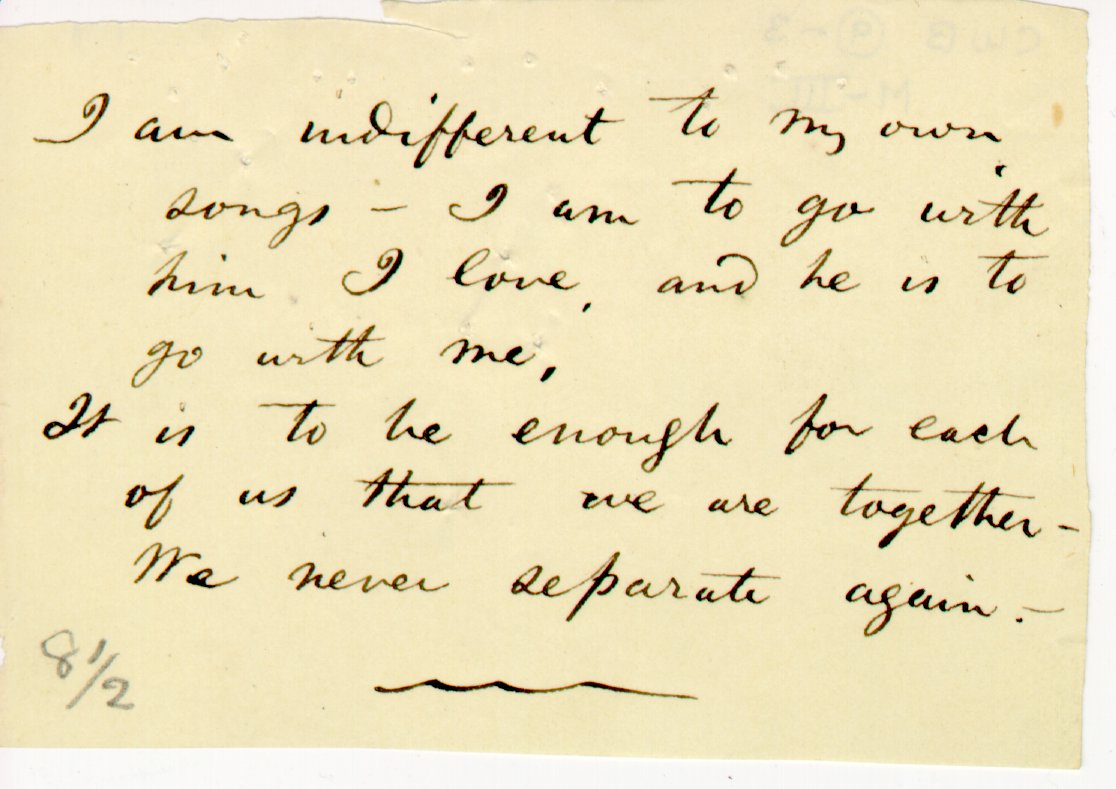 I am indifferent to my own
songs – I am to go with
him I love, and he is to
go with me,
It is to be enough for each
of us that we are together –
We never separate again. –
8 1/2